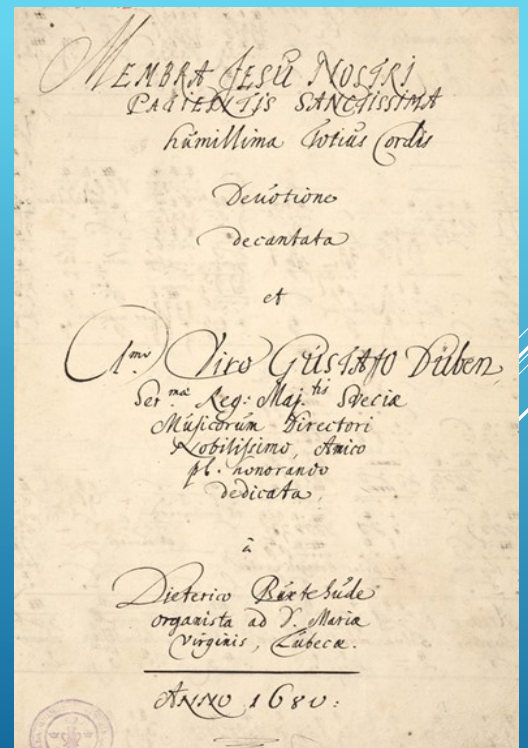 MEMBRA JESU NOSTRI
PATIENTIS SANCTISSIMA
humillima Totius Cordis
Devotione
decantata
et
Viro GUSTAVO Düben
Ser.mæ Reg: Maj.tis Sveciæ
Musicorum Directori
Nobilissimo, Amico
pl. honorando
dedicata
à
Dieterico Buxtehude
organista ad S. Mariæ
Virginis, Lübecæ.
ANNO 1680: